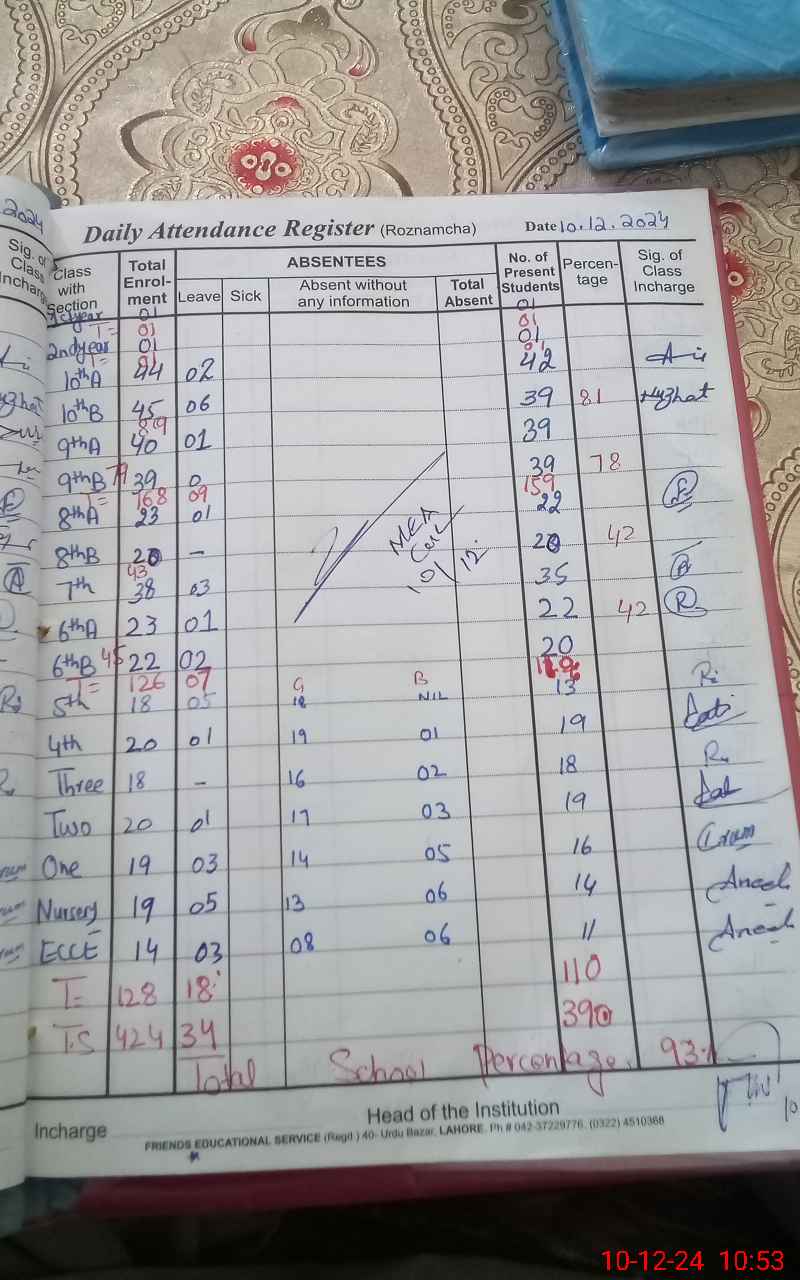 2024
Daily Attendance Register (Roznamcha) Date 10.12.2024
Sig. of Class Incharge
Class with Section Total Enrolment ABSENTEES No. of Present Students Percentage Sig. of Class Incharge
Leave Sick Absent without any information Total Absent
year 01 01
T= 01 01
2nd year 01 01
T= 01 01
10th A 44 02 42
10th B 45 06 39 81 Nuzhat
89
9th A 40 01 39
9th B 79 39 0 39 78
T= 168 09 159
8th A 23 01 22
8th B 20 – 20 42
43
7th 38 03 35
6th A 23 01 22 42 R
6th B 45 22 02 20
T= 126 07
MEA
10/12
G B
5th 18 05 18 NIL 13
4th 20 01 19 01 19
Three 18 – 16 02 18
Two 20 01 17 03 19
One 19 03 14 05 16 Iram
Nursery 19 05 13 06 14 Aneel
ECCE 14 03 08 06 11 Aneel
T= 128 18 110
T.S 424 34 390
Total School Percentage. 93%
Incharge Head of the Institution
FRIENDS EDUCATIONAL SERVICE (Regd.) 40- Urdu Bazar, LAHORE. Ph # 042-37229776, (0322) 4510368
10-12-24 10:53